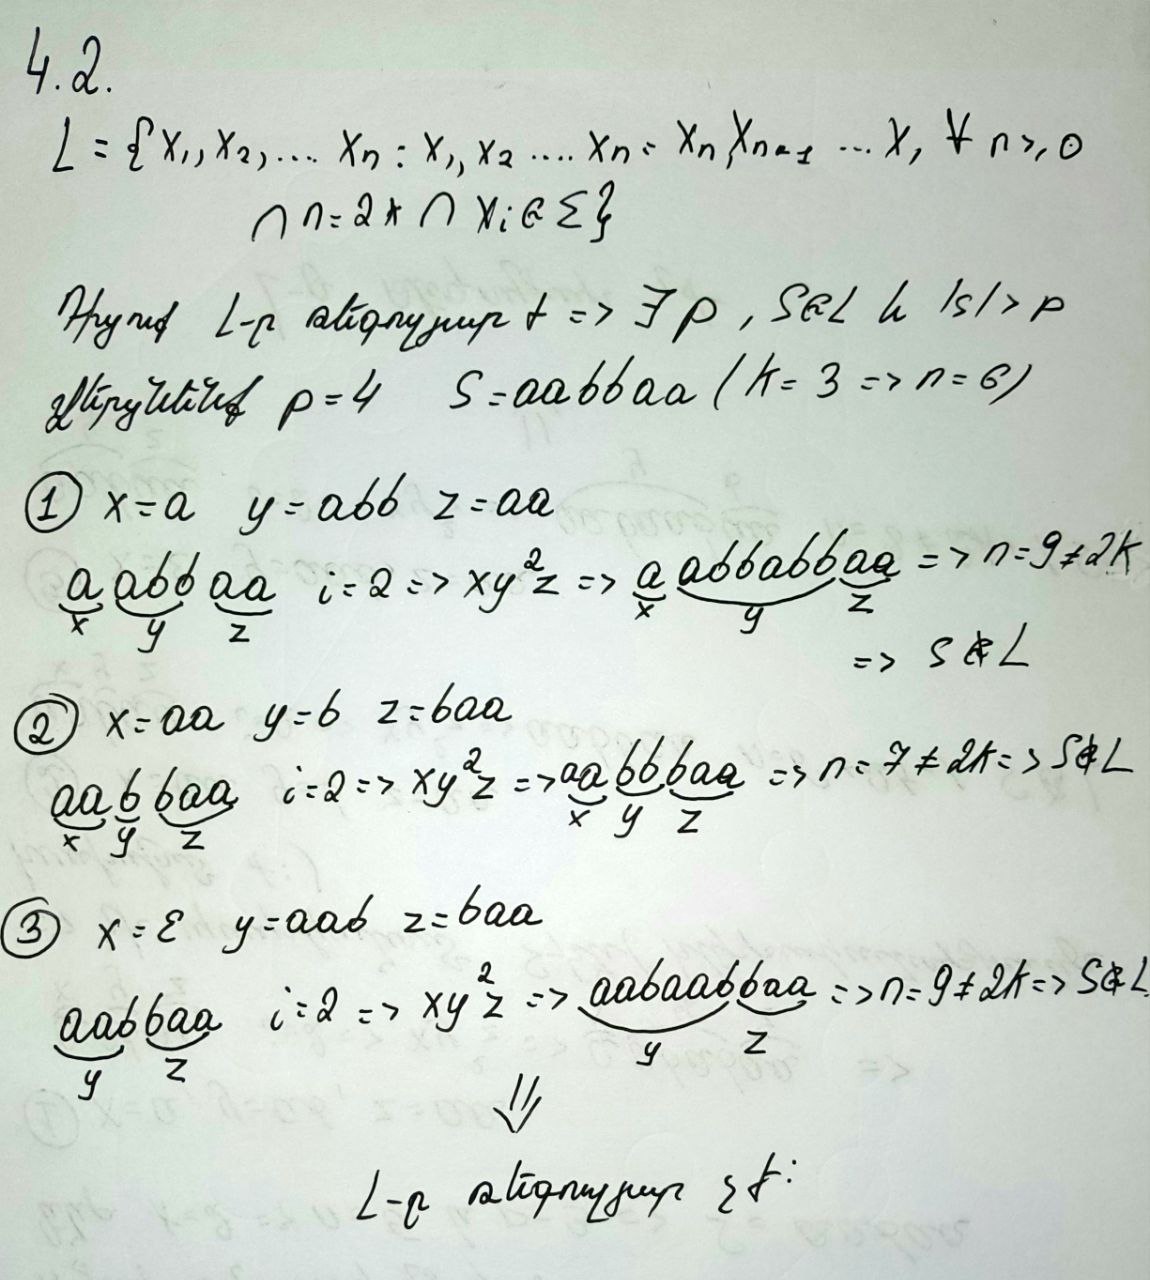 4.2.
L = {x₁, x₂, ... xₙ : x₁, x₂ .... xₙ = xₙ, xₙ₋₁ ... x, ∀ n ≥, 0
∩ n = 2k ∩ xᵢ ∈ Σ}
Դիցուք L-ը ռեգուլյար է => ∃ p, S∈L և |s| > p
Վերցնենք p = 4 S = aabbaa (k = 3 => n = 6)
① x = a y = abb z = aa
a abb aa i = 2 => xy²z => a abbabb aa => n = 9 ≠ 2k
x y z x y z
=> S ∉ L
② x = aa y = b z = baa
aa b baa i = 2 => xy²z => aa bb baa => n = 7 ≠ 2k => S ∉ L
x y z x y z
③ x = ε y = aab z = baa
aabbaa i = 2 => xy²z => aabaabbaa => n = 9 ≠ 2k => S ∉ L
y z y z
⇓
L-ը ռեգուլյար չէ: